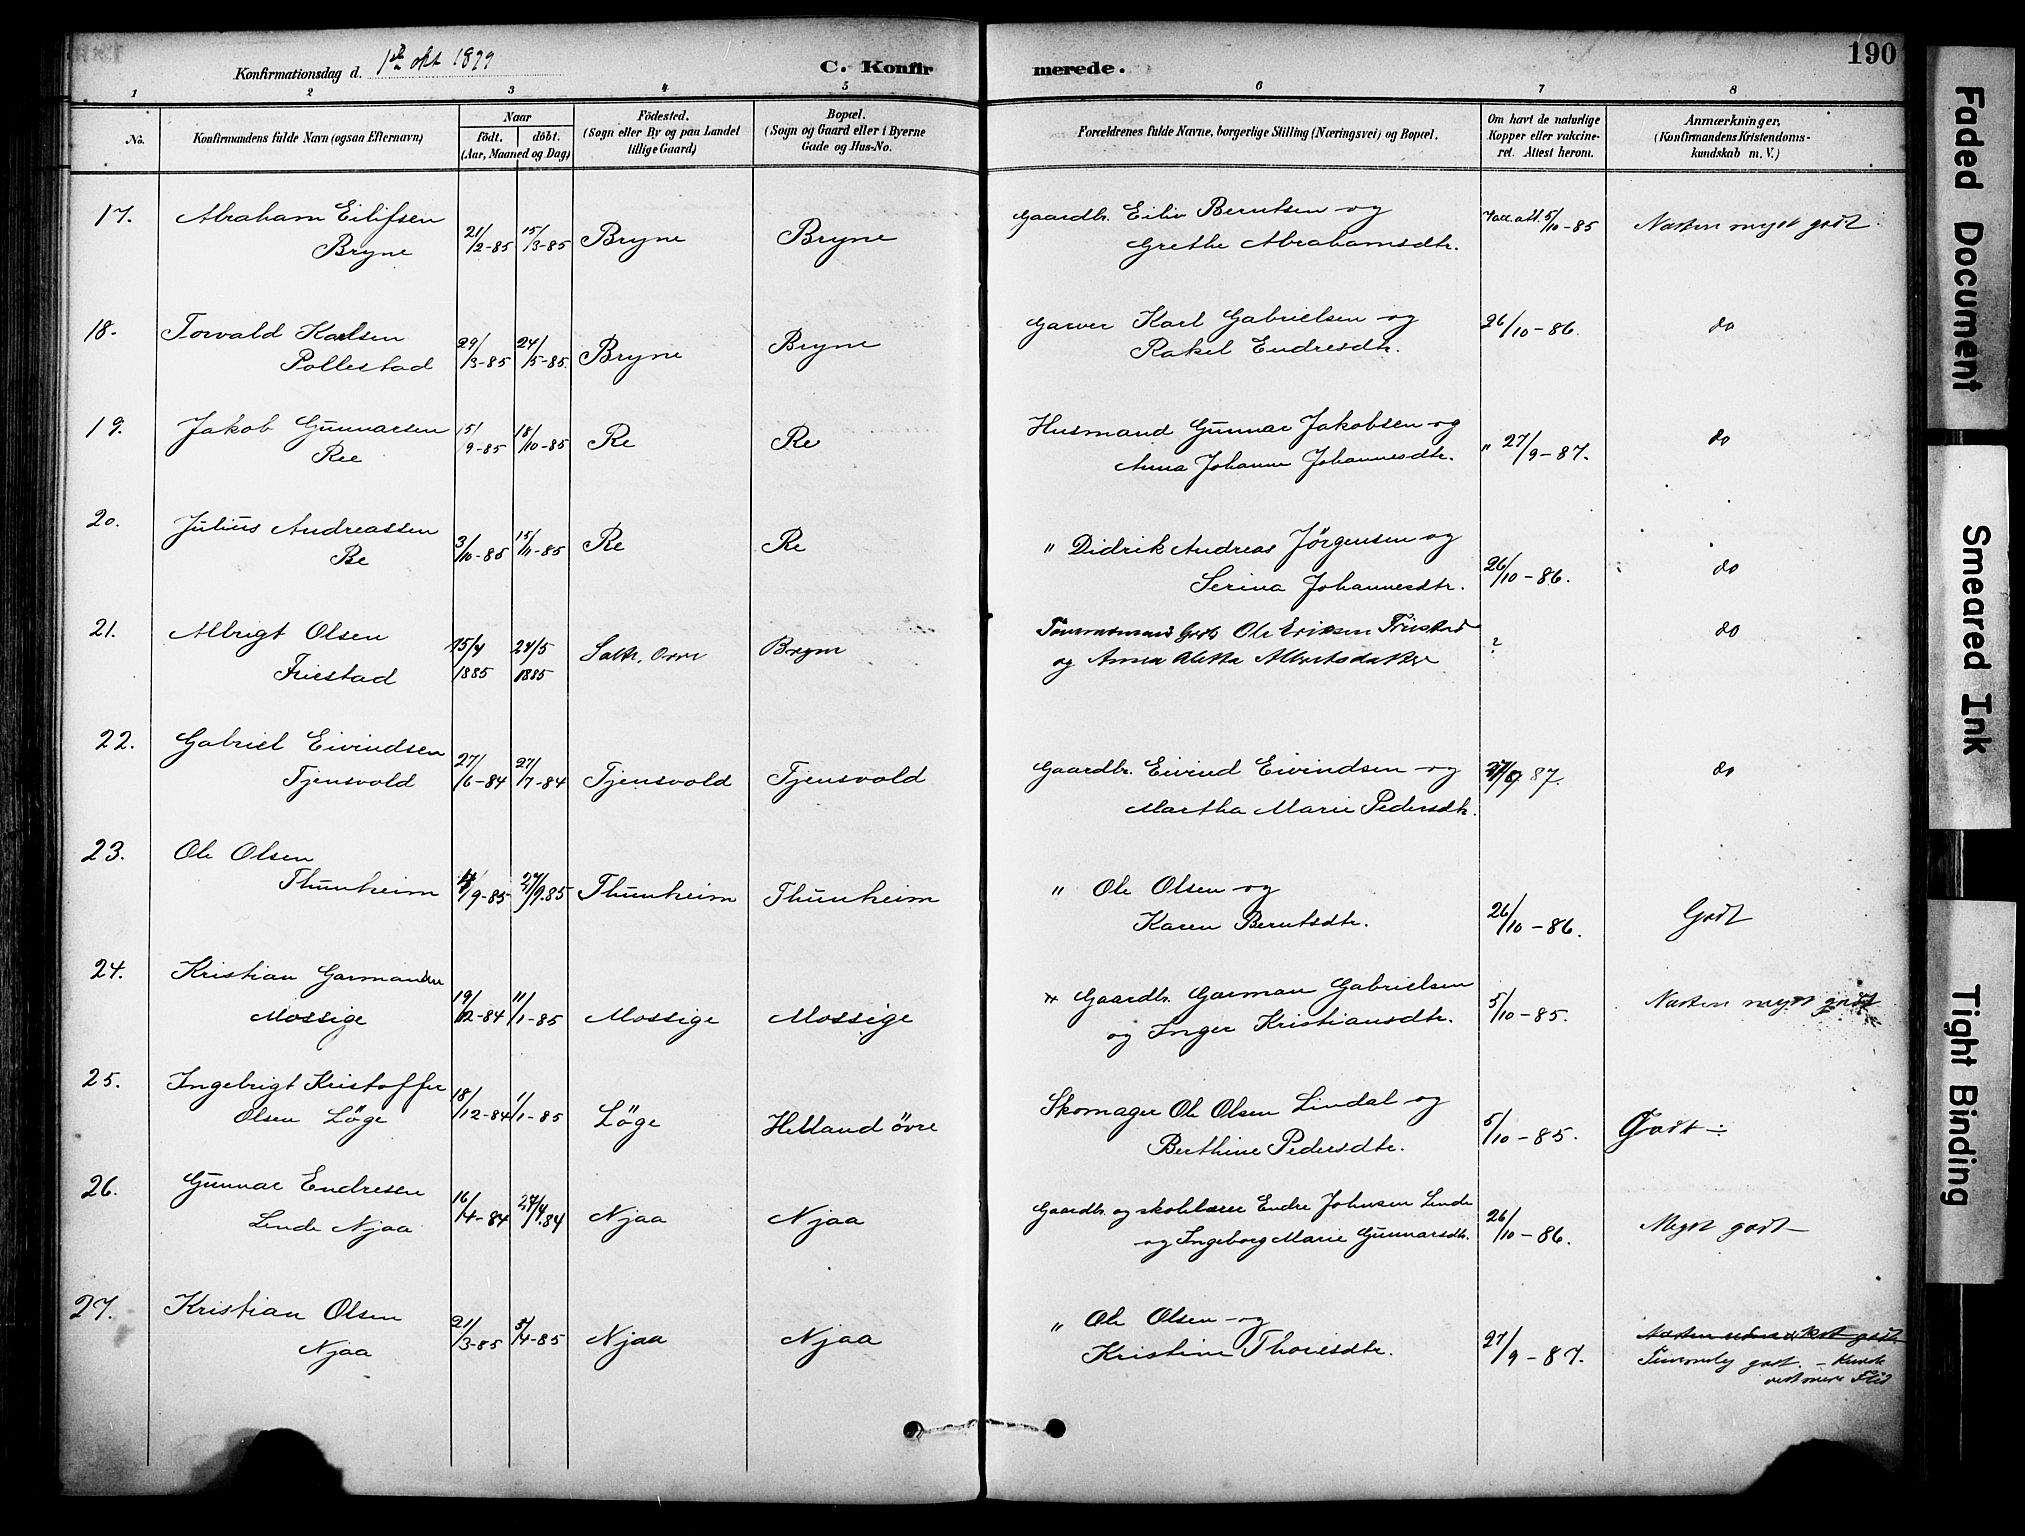 Konfirmationsdag d. 1ste okt 1899
C. Konfirmerede.
190
1 2 3 4 5 6 7 8
No.
Konfirmandens fulde Navn (ogsaa Efternavn)
Naar
født. døbt.
(Aar, Maaned og Dag)
Fødested.
(Sogn eller By og paa Landet
tillige Gaard)
Bopæl.
(Sogn og Gaard eller i Byerne
Gade og Hus-No.
Forældrenes fulde Navne, borgerlige Stilling (Næringsvei) og Bopæl.
Om havt de naturlige
Kopper eller vakcine-
ret. Attest herom.
Anmærkninger,
(Konfirmandens Kristendoms-
kundskab m. V.)
17. Abraham Eilifsen
Bryne
21/2-85 15/3-85 Bryne Bryne
Gaardbr. Eiliv Berntsen og
Grethe Abrahamsdtr.
Vacc.att. 5/10-85 Næsten meget godt.
18. Torvald Karlsen
Pollestad
29/3-85 24/5-85. Bryne Bryne
Garver Karl Gabrielsen og
Rakel Endresdtr.
26/10-86. do
19. Jakob Gunnarsen
Ree
15/9-85 18/10-85 Re Re
Husmand Gunnar Jakobsen og
Anna Johanne Johannesdtr.
" 27/9-87. do
20. Julius Andreassen
Re
3/10-85 15/11-85 Re Re
" Didrik Andreas Jørgensen og
Serina Johannesdtr.
26/10-86. do
21. Albrigt Olsen
Friestad
15/4 1885 24/5 1885 Salte, Orre Bryne
Ole Eriksen Friestad
og Anna Aletta Albertsdatter
? do
22. Gabriel Eivindsen
Tjensvold
27/6-84 27/7-84 Tjensvold Tjensvold
Gaardbr. Eivind Eivindsen og
Martha Marie Pedersdtr.
27/9 87. do
23. Ole Olsen
Thunheim
4/9-85 27/9.85 Thunheim Thunheim
" Ole Olsen og
Karen Berntsdtr.
26/10-86. Godt
24. Kristian Garmansen
Mossige
19/12-84 11/1-85 Mossige Mossige
" Gaardbr. Garman Gabrielsen
og Inger Kristiansdtr.
5/10-85. Næsten meget godt
25. Ingebrigt Kristoffer
Olsen Löge
18/12-84 1/1-85 Löge Helland övre
Skomager Ole Olsen Lindal og
Berthine Pedersdtr.
5/10-85. Godt ÷
26. Gunnar Endresen
Lende Njaa
16/4-84 27/4.84 Njaa Njaa
Gaardbr. og skolelærer Endre Johnsen Lende
og Ingeborg Marie Gunnarsdtr.
26/10-86. Meget godt
27. Kristian Olsen
Njaa
21/3-85 5/4-85 Njaa Njaa
" Ole Olsen og
Kristine Thoresdtr.
27/9-87.
Temmelig godt. - Kunde
vist mere Flid
Faded Document
Smeared Ink
Tight Binding